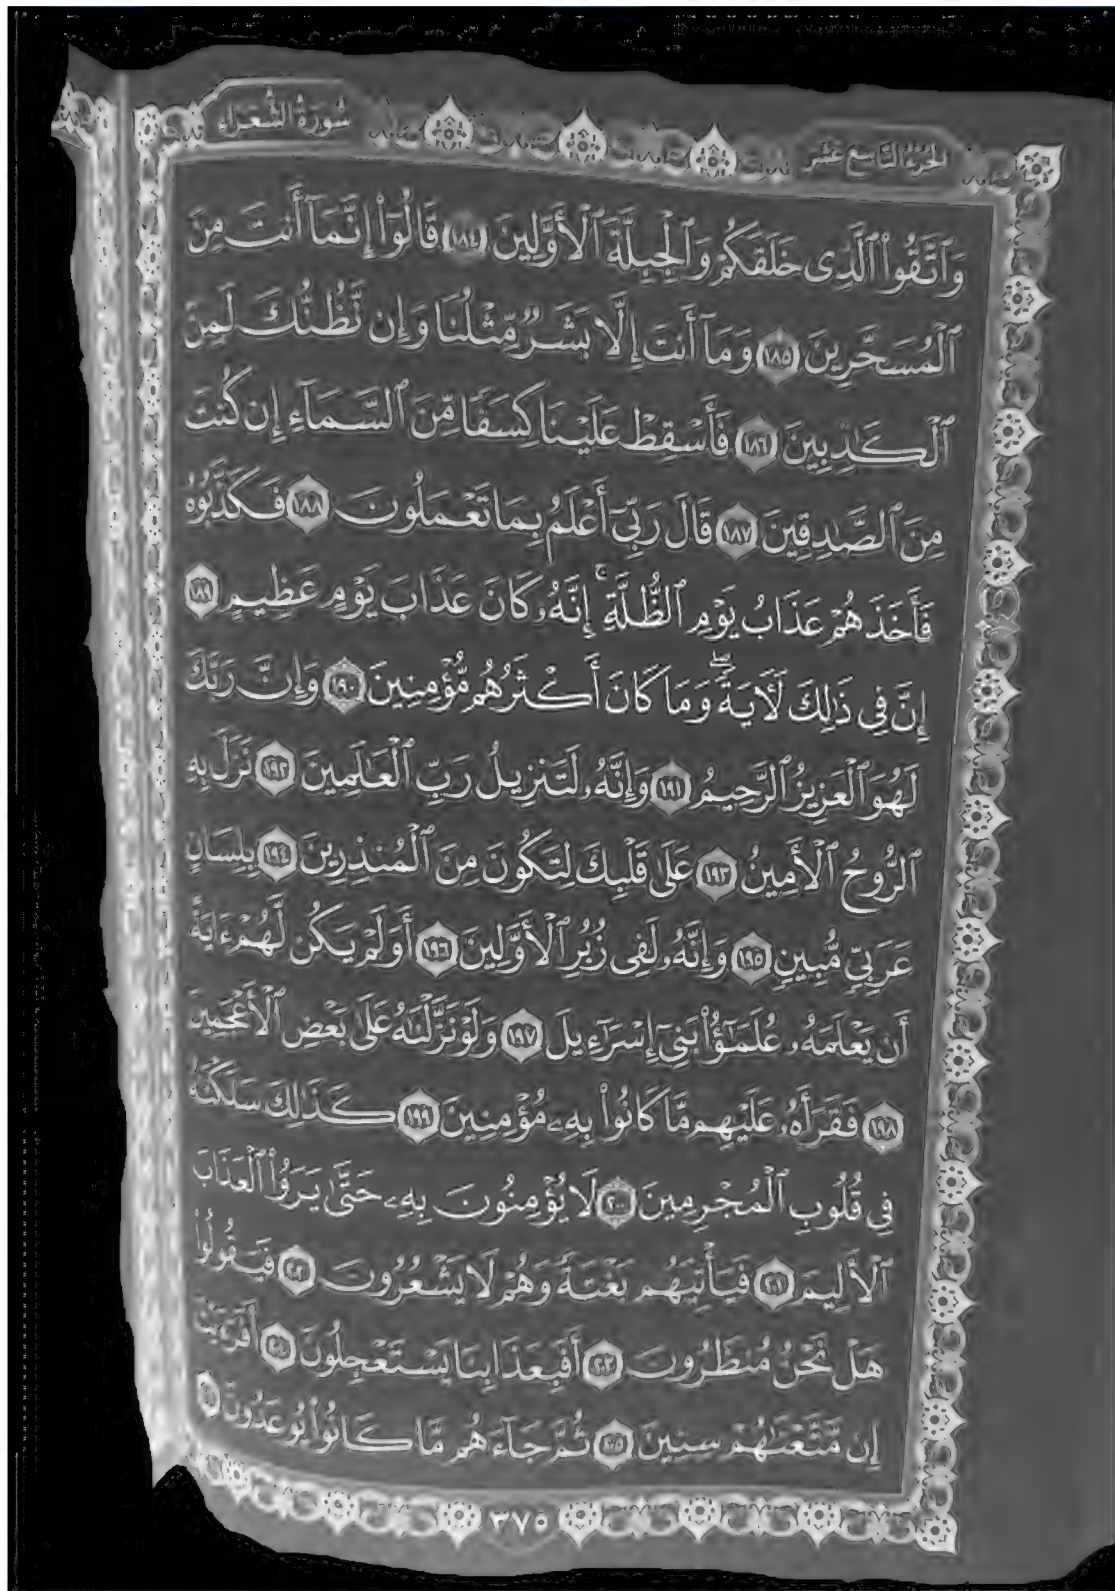 سُورَةُ الشُّعَرَاءِ
الجُزْءُ التَّاسِعَ عَشَرَ
وَٱتَّقُوا۟ ٱلَّذِى خَلَقَكُمْ وَٱلْجِبِلَّةَ ٱلْأَوَّلِينَ ١٨٤ قَالُوٓا۟ إِنَّمَآ أَنتَ مِنَ
ٱلْمُسَحَّرِينَ ١٨٥ وَمَآ أَنتَ إِلَّا بَشَرٌ مِّثْلُنَا وَإِن نَّظُنُّكَ لَمِنَ
ٱلْكَـٰذِبِينَ ١٨٦ فَأَسْقِطْ عَلَيْنَا كِسَفًا مِّنَ ٱلسَّمَآءِ إِن كُنتَ
مِنَ ٱلصَّـٰدِقِينَ ١٨٧ قَالَ رَبِّىٓ أَعْلَمُ بِمَا تَعْمَلُونَ ١٨٨ فَكَذَّبُوهُ
فَأَخَذَهُمْ عَذَابُ يَوْمِ ٱلظُّلَّةِ ۚ إِنَّهُۥ كَانَ عَذَابَ يَوْمٍ عَظِيمٍ ١٨٩
إِنَّ فِى ذَٰلِكَ لَـَٔايَةً ۖ وَمَا كَانَ أَكْثَرُهُم مُّؤْمِنِينَ ١٩٠ وَإِنَّ رَبَّكَ
لَهُوَ ٱلْعَزِيزُ ٱلرَّحِيمُ ١٩١ وَإِنَّهُۥ لَتَنزِيلُ رَبِّ ٱلْعَـٰلَمِينَ ١٩٢ نَزَلَ بِهِ
ٱلرُّوحُ ٱلْأَمِينُ ١٩٣ عَلَىٰ قَلْبِكَ لِتَكُونَ مِنَ ٱلْمُنذِرِينَ ١٩٤ بِلِسَانٍ
عَرَبِىٍّ مُّبِينٍ ١٩٥ وَإِنَّهُۥ لَفِى زُبُرِ ٱلْأَوَّلِينَ ١٩٦ أَوَلَمْ يَكُن لَّهُمْ ءَايَةً
أَن يَعْلَمَهُۥ عُلَمَـٰٓؤُا۟ بَنِىٓ إِسْرَٰٓءِيلَ ١٩٧ وَلَوْ نَزَّلْنَـٰهُ عَلَىٰ بَعْضِ ٱلْأَعْجَمِينَ
١٩٨ فَقَرَأَهُۥ عَلَيْهِم مَّا كَانُوا۟ بِهِۦ مُؤْمِنِينَ ١٩٩ كَذَٰلِكَ سَلَكْنَـٰهُ
فِى قُلُوبِ ٱلْمُجْرِمِينَ ٢٠٠ لَا يُؤْمِنُونَ بِهِۦ حَتَّىٰ يَرَوُا۟ ٱلْعَذَابَ
ٱلْأَلِيمَ ٢٠١ فَيَأْتِيَهُم بَغْتَةً وَهُمْ لَا يَشْعُرُونَ ٢٠٢ فَيَقُولُوا۟
هَلْ نَحْنُ مُنظَرُونَ ٢٠٣ أَفَبِعَذَابِنَا يَسْتَعْجِلُونَ ٢٠٤ أَفَرَءَيْتَ
إِن مَّتَّعْنَـٰهُمْ سِنِينَ ٢٠٥ ثُمَّ جَآءَهُم مَّا كَانُوا۟ يُوعَدُونَ
٣٧٥